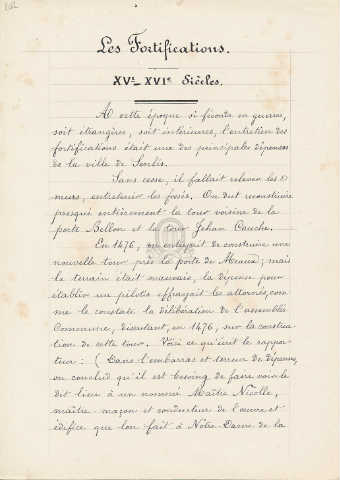 Les Fortifications.
XVe - XVIe Siècles.
A cette époque si féconde en guerres,
soit étrangères, soit intérieures, l'entretien des
fortifications était une des principales dépenses
de la ville de Senlis.
Sans cesse, il fallait relever les
murs, entretenir les fossés. On dut reconstruire
presque entièrement la tour voisine de la
porte Bellon et la tour Jehan Cauche.
En 1476, on entreprit de construire une
nouvelle tour près la porte de Meaux; mais
le terrain était mauvais, la dépense pour
établir un pilotis effrayait les attornés, com
me le constate la délibération de l'assemblée
Commune, discutant, en 1476, sur la construc
tion de cette tour. Voici ce qu'écrit le rappor-
teur: ( Dans l'embarras et terreur de dépense,
on conclud qu'il est besoing de faire voir le
dit lieu à un nommé Maître Nicolle,
maître-maçon et conducteur de l'œuvre et
édifice que l'on fait à Notre-Dame de la